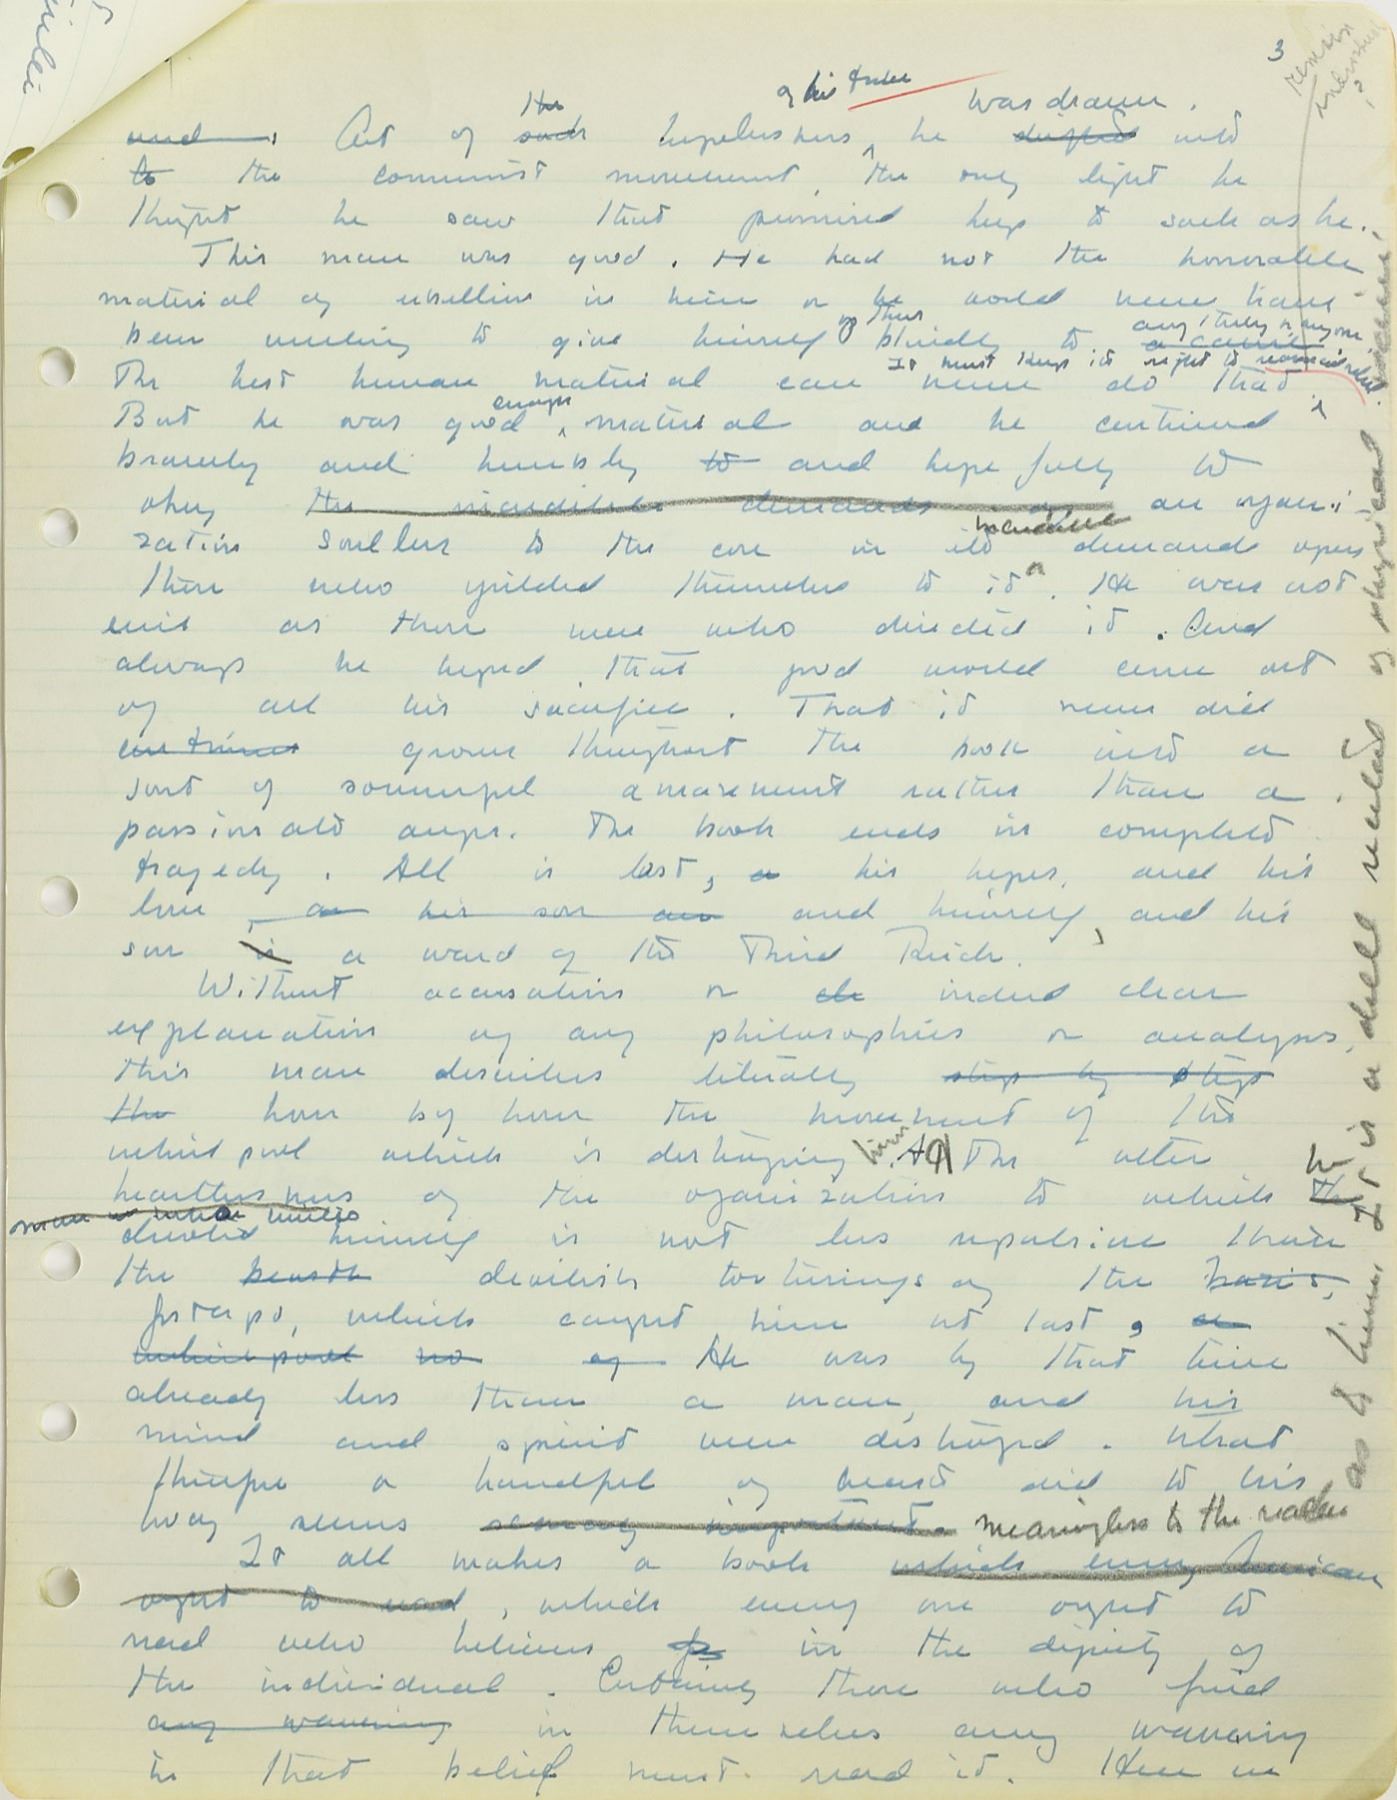 3
remain
the
of his
was drawn.
and Out of such hopelessness, he drifted into
to the communist movement, the only light he
thought he saw that promised help to such as he.
This man was good. He had not the honorable
material of rebellion in him or he would never have
up thus
any thing or anyone
been willing to give himself blindly to a cause
It must keep its right to
The best human material can never do that
enough
But he was good, material and he continued
bravely and humbly to and hopefully to
obey the incredible demands of an organi-
incredible
zation soulless to the core in its demands upon
those who yielded themselves to it. He was not
evil as those were who directed it. And
always he hoped that good would come out
of all his sacrifice. That it never did
grows throughout the book into a
sort of sorrowful amazement rather than a
passionate anger. The book ends in complete
tragedy. All is lost, his hopes, and his
love his son and himself, and his
son is a ward of the Third Reich.
Without accusation or indeed clear
explanation of any philosophies or analyses,
this man describes literally step by step
the hour by hour the movement of the
him
whirlpool which is destroying The utter
he
heartlessness of the organization to which the
man
devoted himself is not less repulsive than
the devilish torturings of the Nazis,
Gestapo, which caught him at last,
whirlpool no of He was by that time
already less than a man, and his
mind and spirit were destroyed. What
therefore a handful of beasts did to his
body seems scarcely important. meaningless to the reader
It all makes a book which every American
ought to read, which every one ought to
read who believes in the dignity of
the individual. Certainly those who find
any wavering in themselves any wavering
in that belief must read it. Here we
as of him. It is a dull record of physical